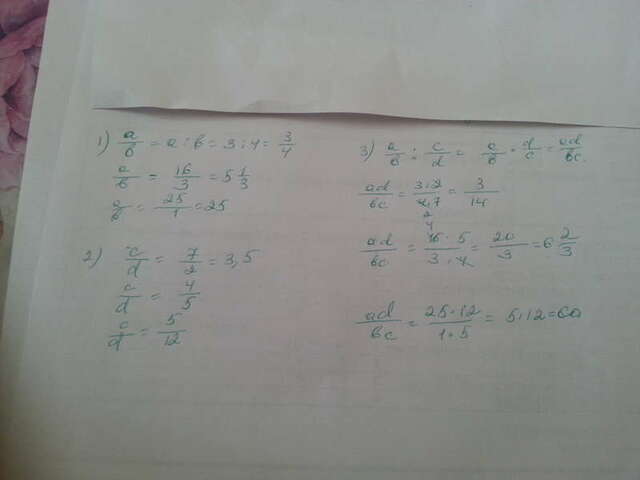 1) a/b = a : b = 3 : 4 = 3/4
a/b = 16/3 = 5 1/3
a/b = 25/1 = 25
2) c/d = 7/2 = 3,5
c/d = 4/5
c/d = 5/12
3) a/b : c/d = a/b · d/c = ad/bc.
ad/bc = 3·2/4·7 = 3/14
2
4
ad/bc = 16·5/3·4 = 20/3 = 6 2/3
ad/bc = 25·12/1·5 = 5·12=60